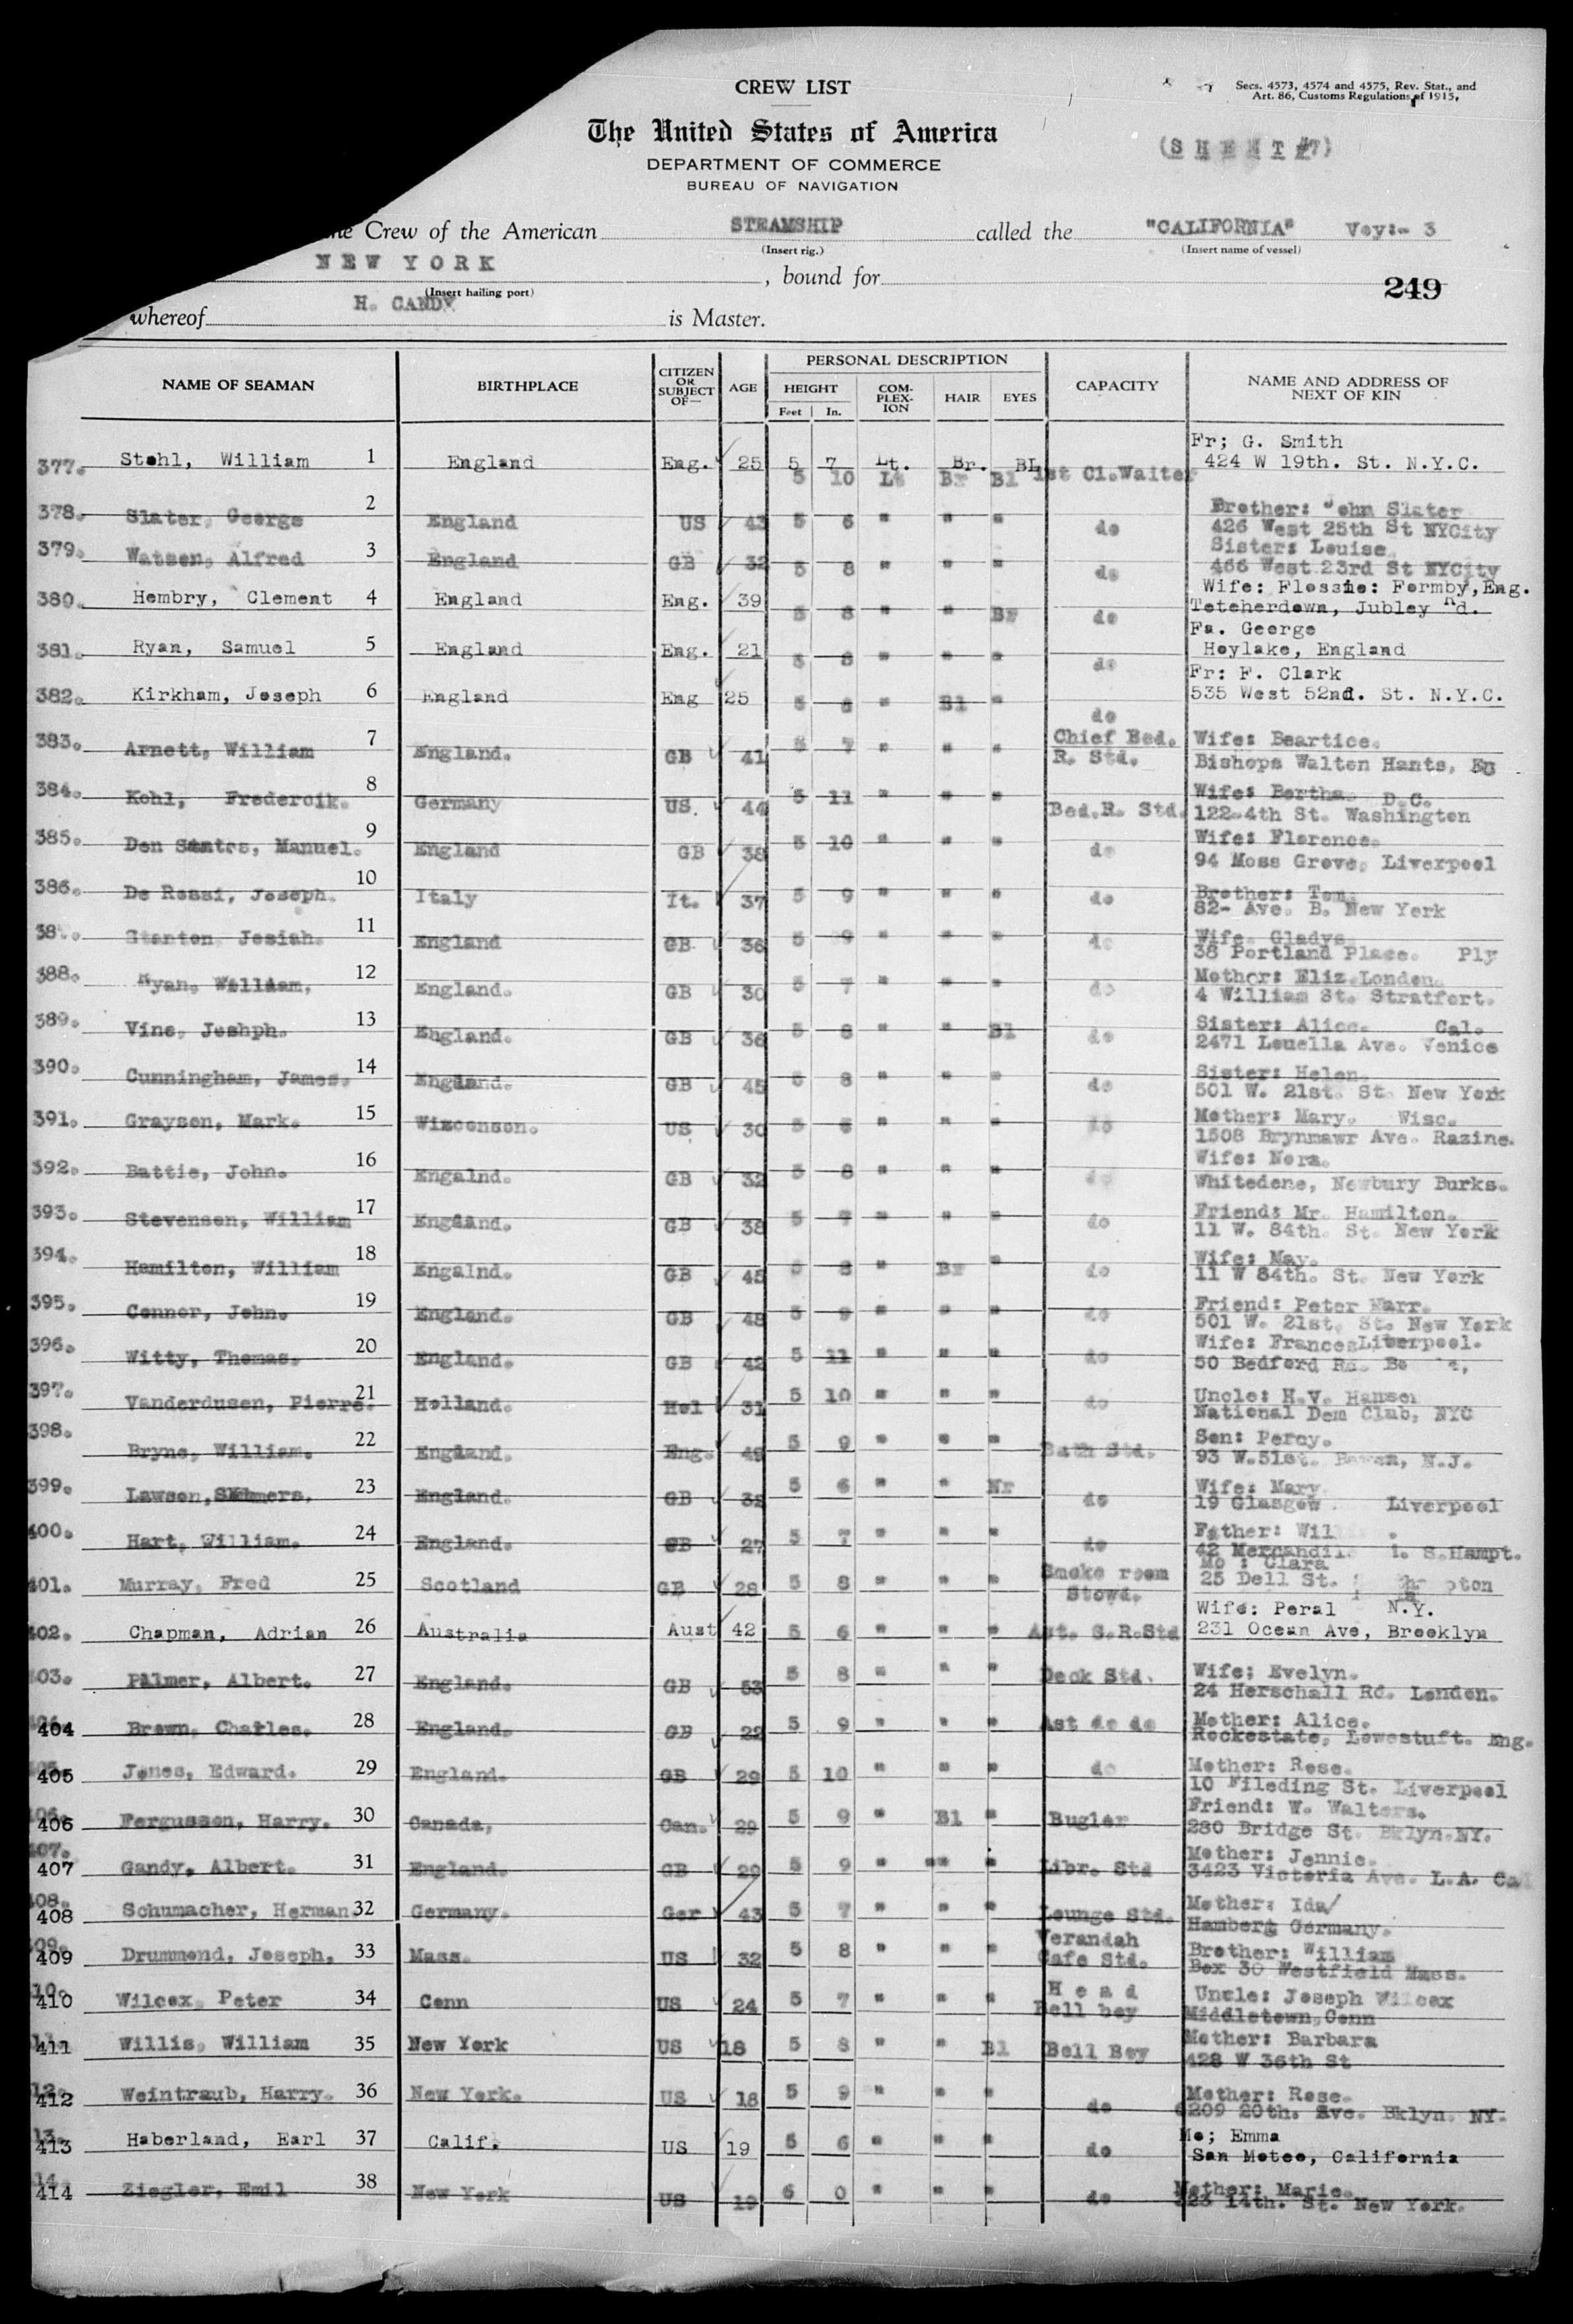 CREW LIST
Secs. 4573, 4574 and 4575, Rev. Stat., and
Art. 86, Customs Regulations of 1915,
The United States of America
(S H E E T #7)
DEPARTMENT OF COMMERCE
BUREAU OF NAVIGATION
Crew of the American STEAMSHIP called the "CALIFORNIA" Voy:- 3
(Insert rig.) (Insert name of vessel)
NEW YORK , bound for
249
(Insert hailing port)
whereof H. CANDY is Master.
NAME OF SEAMAN BIRTHPLACE CITIZEN OR SUBJECT OF— AGE PERSONAL DESCRIPTION CAPACITY NAME AND ADDRESS OF NEXT OF KIN
HEIGHT COM-PLEX-ION HAIR EYES
Feet In.
Fr; G. Smith
377. Stohl, William 1 England Eng. 25 5 7 Lt. Br. BL 424 W 19th. St. N.Y.C.
5 10 Lt Br Bl 1st Cl.Waiter
Brother: John Slater
378. Slater, George 2 England US 43 5 6 " " " do 426 West 25th St NYCity
Sister: Louise
379. Watson, Alfred 3 England GB 32 5 8 " " " do 466 West 23rd St NYCity
Wife: Flossie: Formby,Eng.
380. Hembry, Clement 4 England Eng. 39 5 8 " " Br do Teteherdown, Jubley Rd.
Fa. George
381. Ryan, Samuel 5 England Eng. 21 5 8 " " " do Hoylake, England
Fr: F. Clark
382. Kirkham, Joseph 6 England Eng 25 5 6 " Bl " do 535 West 52nd. St. N.Y.C.
383. Arnett, William 7 England. GB 41 5 7 " " " Chief Bed. Wife: Beartice.
R. Std. Bishops Walton Hants, EG
384. Kohl, Frederoik. 8 Germany US. 44 5 11 " " " Bed.R. Std. Wife: Bertha. D.C.
122-4th St. Washington
385. Don Santos, Manuel. 9 England GB 38 5 10 " " " do Wife: Florence.
94 Moss Grove, Liverpool
386. De Rossi, Joseph. 10 Italy It. 37 5 9 " " " do Brother: Tom.
82- Ave. B. New York
38. Stanton Josiah. 11 England GB 36 5 9 " " " do Wife. Gladys
38 Portland Place. Ply
388. Ryan, William. 12 England. GB 30 5 7 " " " do Mother: Eliz.London.
4 William St. Stratfort.
389. Vine, Joshph. 13 England. GB 36 5 8 " " Bl do Sister: Alice. Cal.
2471 Louella Ave. Venice
390. Cunningham, James. 14 England. GB 45 5 8 " " " do Sister: Helen.
501 W. 21st. St. New York
391. Grayson, Mark. 15 Wisconson. US 30 5 6 " " " do Mother: Mary. Wisc.
1508 Brynmawr Ave. Razine.
392. Battie, John. 16 Engalnd. GB 32 5 8 " " " do Wife: Nora.
Whitedene, Newbury Burks.
393. Stevenson, William 17 England. GB 38 5 7 " " " do Friend: Mr. Hamilton.
11 W. 84th. St. New York
394. Hamilton, William 18 Engalnd. GB 45 5 8 " Br " do Wife: May.
11 W 84th. St. New York
395. Connor, John. 19 England. GB 48 5 9 " " " do Friend: Peter Marr.
501 W. 21st. St. New York
396. Witty, Thomas. 20 England. GB 42 5 11 " " " do Wife: FrancesLiverpool.
50 Bedford Rd.
397. Vanderdusen, Pierre. 21 Holland. Hol 31 5 10 " " " do Uncle: H.V. Hansen
National Dem Club, NYC
398. Bryne, William. 22 England. Eng. 49 5 9 " " " Bath Std. Son: Percy.
93 W.51st. N.J.
399. Lawson, 23 England. GB 32 5 6 " " Nr do Wife: Mary
19 Glasgow Liverpool
400. Hart, William. 24 England. GB 27 5 7 " " " do Father:
42 S.Hampt.
401. Murray, Fred 25 Scotland GB 28 5 8 " " " Smoke room Mo : Clara
Stowd. 25 Dell St.
Wife: Peral N.Y.
402. Chapman, Adrian 26 Australia Aust 42 5 6 " " " Ast. S.R.Std 231 Ocean Ave, Brooklyn
403. Palmer, Albert. 27 England. GB 53 5 8 " " " Deck Std. Wife; Evelyn.
24 Herschall Rd. London.
404 Brown, Charles. 28 England. GB 22 5 9 " " " Ast do do Mother: Alice.
Rockestate, Lowestuft. Eng.
405 Jones, Edward. 29 England. GB 29 5 10 " " " do Mother: Rose.
10 Fileding St. Liverpool
406 Fergusson, Harry. 30 Canada, Can. 29 5 9 " Bl " Bugler Friend: W. Walters.
280 Bridge St. Bklyn.NY.
407 Gandy, Albert. 31 England. GB 29 5 9 " " " Libr. Std Mother: Jennie.
3423 Victoria Ave. L.A. Cal
408 Schumacher, Herman 32 Germany. Ger 43 5 7 " " " Lounge Std. Mother: Ida/
Hamberg Germany.
409 Drummond, Joseph. 33 Mass. US 32 5 8 " " " Verandah Brother: William
Cafe Std. Box 30 Westfield Mass.
410 Wilcox, Peter 34 Conn US 24 5 7 " " " H e a d Uncle: Joseph Wilcox
Bell boy Middletown,Conn
411 Willis, William 35 New York US 18 5 8 " " Bl Bell Boy Mother: Barbara
428 W 36th St
412 Weintraub, Harry. 36 New York. US 18 5 9 " " " do Mother: Rose.
6209 20th. Ave. Bklyn. NY.
413 Haberland, Earl 37 Calif. US 19 5 6 " " " do Mo; Emma
San Moteo, California
414 Ziegler, Emil 38 New York US 19 6 0 " " " do Mother: Marie.
323 14th. St. New York.